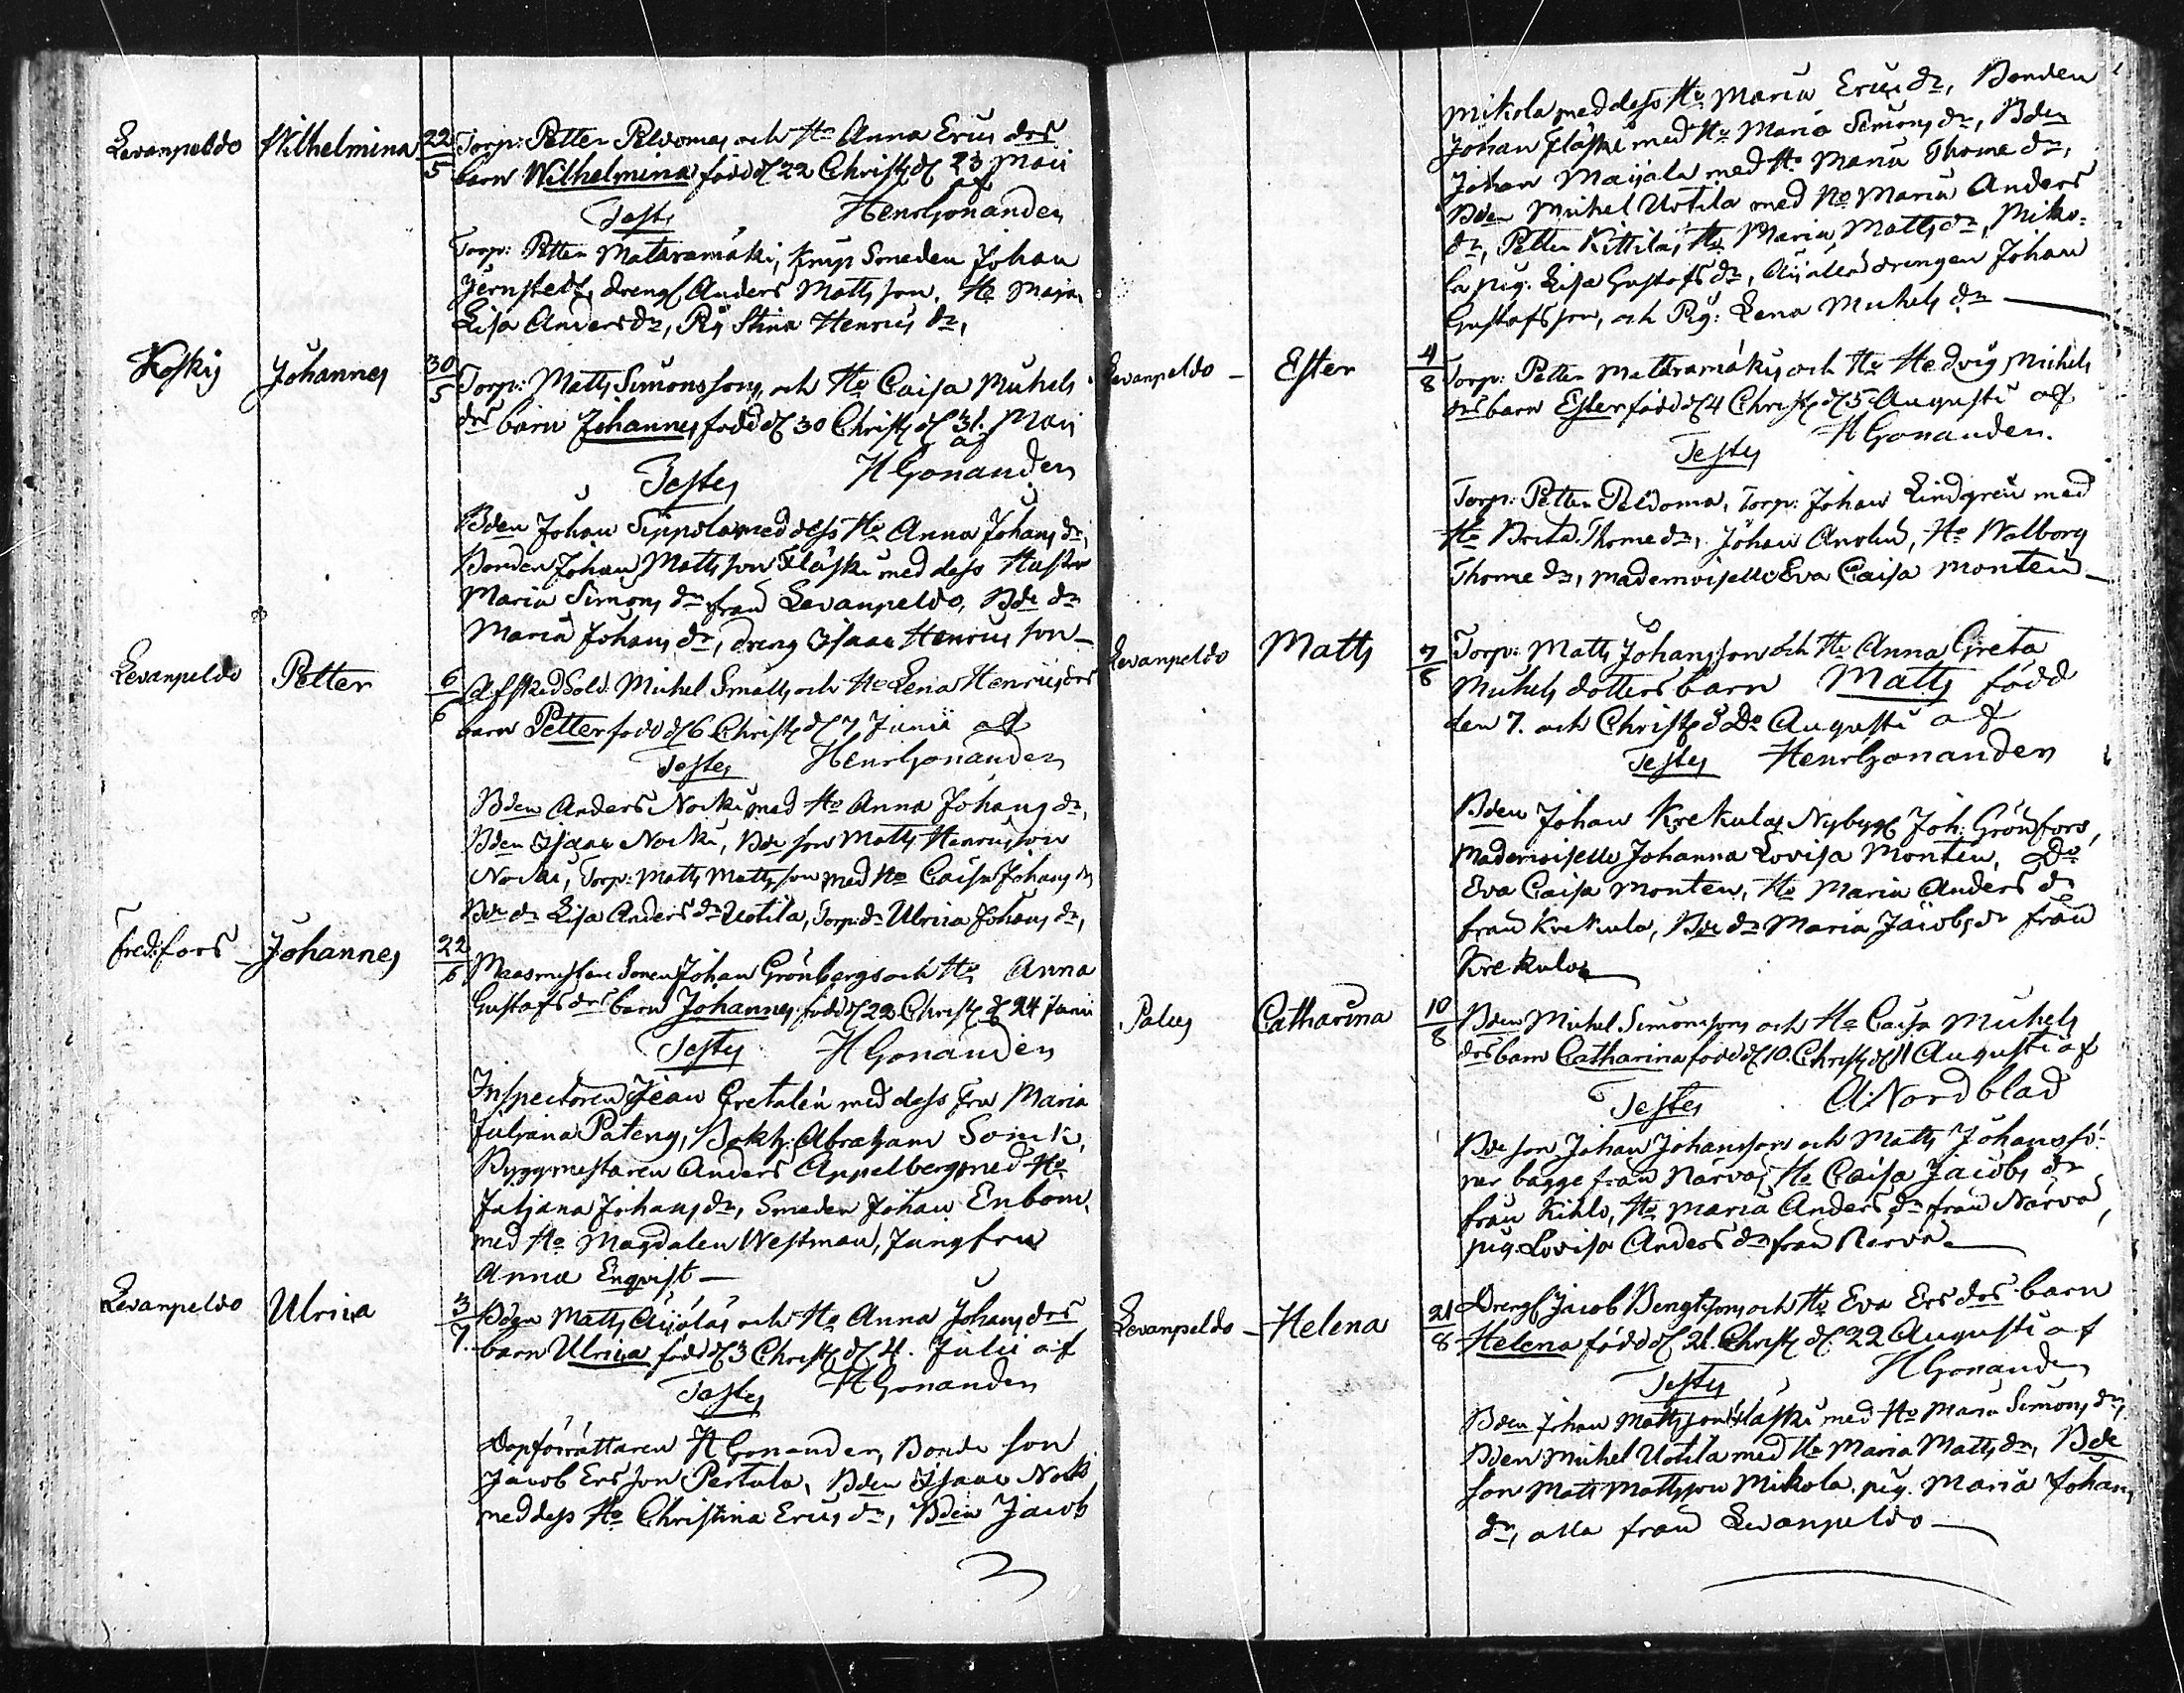 Levanpeldo Wilhelmina 22/5 Torp: Petter Peldomas och Ho Anna Erics drs
barn Wilhelmina född d 22 Christ d 23 Maii
af
Testes Henr Gonanden
Torp: Petter Mataramäki, Smeden Johan
Jernstedt, dreng Anders Matts son, Ho Maja
Lisa Anders dr, Pig Stina Henrics dr,
Koskis Johannes 30/5 Torp: Matts Simonssons och Ho Caisa Michels
drs barn Johannes född d 30 Christ d 31. Maii
af
Testes H Gonanden
Bden Johan Sippola med dess Ho Anna Johans dr,
Bonden Johan Matts son Fläski med dess Hustru
Maria Simons dr från Levanpeldo, Bde dr
Maria Johans dr, dreng Isaac Henrics son
Levanpeldo Petter 6/6 Afsked Sold. Michel Smålls och Ho Lena Henrics drs
barn Petter född d 6 Christ d 7 Junii af
Testes Henr Gonanden
Bden Anders Nocku med Ho Anna Johans dr,
Bden Isaac Nocku, Bde son Matts Henrics son
Nocku, Torp: Matts Matts son med Ho Caisa Johans dr
Bde dr Lisa Anders dr Uotila, Torp: dr Ulrica Johans dr,
Fred:fors Johannes 22/6 Masmestare Sonen Johan Grönbergs och Ho Anna
Gustafs drs barn Johannes född d 22 Christ d 24 Junii
Testes H Gonanden
Inspectoren Jean Cretalén med dess Fru Maria
Juljana Pateng, Bokh: Abraham
Byggmestaren Anders Appelberg med Ho
Juljana Johans dr, Smeden Johan Enbom,
med Ho Magdalen Westman, Jungfru
Anna Enqvist
Levanpeldo Ulrica 3/7. Bden Matts Äijäläs och Ho Anna Johans drs
barn Ulrica född d 3 Christ d 4. Julii af
Testes H Gonanden
Dopförrättaren H Gonanden, Bonde son
Jacob Ers son Pertula, Bden Isaac Nock
med dess Ho Christina Erics dr, Bden Jacob
Mikola med dess Ho Maria Erics dr, Bonden
Johan Fläski med Ho Maria Simons dr, Bden
Johan Maijala med Ho Maria Thome dr,
Bden Michel Uotila med Ho Maria Anders
dr, Petter Kittilas Ho Maria Matts dr, Miko-
la pig. Lisa Gustafs dr, Äijälä drengen Johan
Gustafsson, och Pig: Lena Michels dr
Levanpeldo Ester 4/8 Torp: Petter Mattramäkis och Ho Hedvig Michels
drs barn Ester född d 4 Christ d 5 Augusti af
Testes H Gonanden.
Torp: Petter Peldoma, Torp: Johan Lindgren med
Ho Brita Thome dr, Johan, Ho Walborg
Thome dr, Mademoiselle Eva Caisa Monten
Levanpeldo Matts 7/8 Torp: Matts Johans son och Ho Anna Greta
Michels dotters barn Matts född
den 7. och Christ d Do Augusti af
Testes Henr Gonanden
Bden Johan Krekula, Nybygg Joh: Grönfors,
Mademoiselle Johanna Lovisa Montén, Do
Eva Caisa Monten, Ho Maria Anders dr
från Krekula, Bde dr Maria Jacobs dr från
Krekula
Palus Catharina 10/8 Bden Michel Simonssons och Ho Caisa Michels
drs barn Catharina född d 10. Christ d 11 Augusti af
Testes A: Nordblad
Bde son Johan Johansson och Matts Johans sö-
ner bägge från Närva, Ho Caisa Jacobs dr
från Kihlo, Ho Maria Anders dr från Närva,
pig. Lovisa Anders dr från Närva
Levanpeldo Helena 21/8 Dreng Jacob Bengtssons och Ho Eva Ers drs barn
Helena född d 21. Christ d. 22 Augusti af
Testes H Gonanden
Bden Johan Matts son Fläski med Ho Maria Simons dr,
Bden Michel Uotila med Ho Maria Matts dr, Bde
son Matt Matts son Mikola, pig. Maria Johans
dr, alla från Levanpeldo